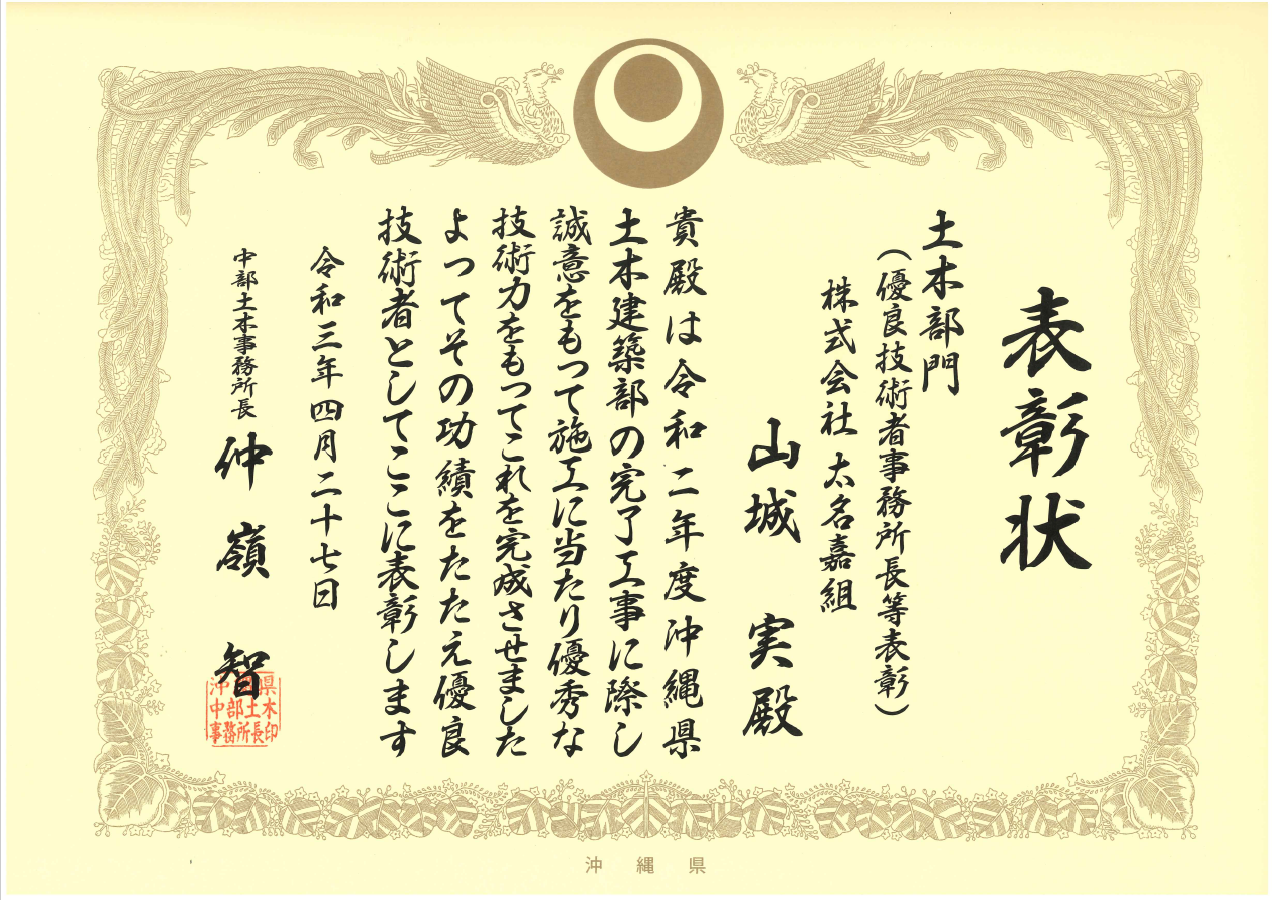 表彰状
土木部門
(優良技術者事務所長等表彰)
株式会社 太名嘉組
山城 実殿
貴殿は令和二年度沖縄県
土木建築部の完了工事に際し
誠意をもって施工に当たり優秀な
技術力をもってこれを完成させました
よってその功績をたたえ優良
技術者としてここに表彰します
令和三年四月二十七日
中部土木事務所長
仲嶺 智
沖縄県
中部土木
事務所長印
沖縄県